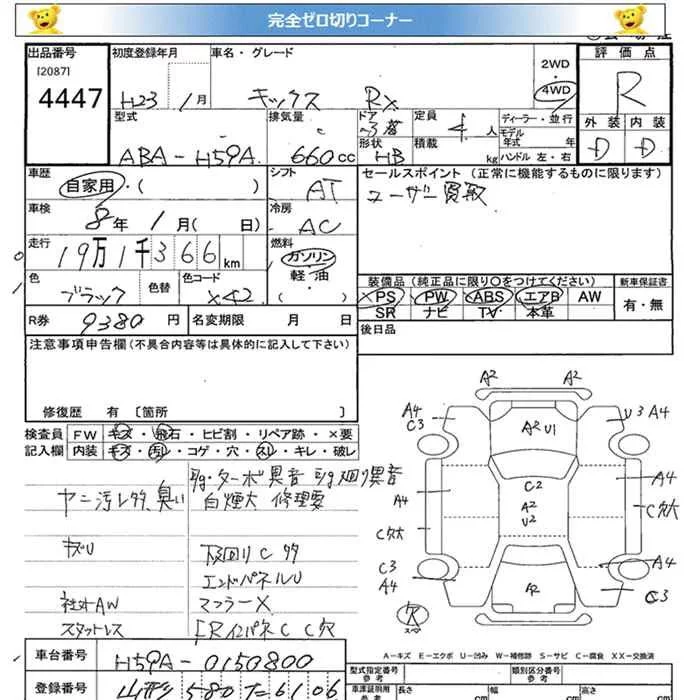 完全ゼロ切りコーナー
出品番号
[2087]
4447
初度登録年月
H23 1月
車名・グレード
キックス RX
2WD
4WD
評価点
R
型式
ABA-H59A
排気量
660cc
ドア
3
形状
HB
定員
4人
積載
kg
ディーラー・並行
モデル
年式 年
ハンドル 左・右
外装
D
内装
D
車歴
自家用・( )
シフト
AT
セールスポイント (正常に機能するものに限ります)
ユーザー買取
車検
8年 1月( 日)
冷房
AC
走行
19万1千366km
燃料
ガソリン
軽・油
( )
色
ブラック
色替
色コード
X42
装備品 (純正品に限り〇をつけてください)
PS PW ABS エアB AW
SR ナビ TV 本革
新車保証書
有・無
R券 9380円
名変期限 月 日
後日品
注意事項申告欄 (不具合内容等は具体的に記入して下さい)
修復歴 有 〔箇所 〕
検査員
記入欄
FW キズ・飛石・ヒビ割・リペア跡・×要
内装 キズ・汚レ・コゲ・穴・スレ・キレ・破レ
E/g・ターボ異音 E/g廻り異音
ヤニ汚レ多、臭い
白煙大 修理要
キズU
下回りC多
エンドパネルU
社外AW
マフラーX
スタットレス
A2
A2
A4
C3
U3 A4
A2 U1
C2
A2
U2
A4
A4
C穴大
C穴大
C3
A4
A4
C3
欠
A-キズ E-エクボ U-凹み W-補修跡 S-サビ C-腐食 XX-交換済
車台番号
H59A-0150800
登録番号
山形 580 6106
型式指定番号
参考
類別区分番号
参考
車検証明用
参考
長さ
cm
幅
cm
高さ
cm